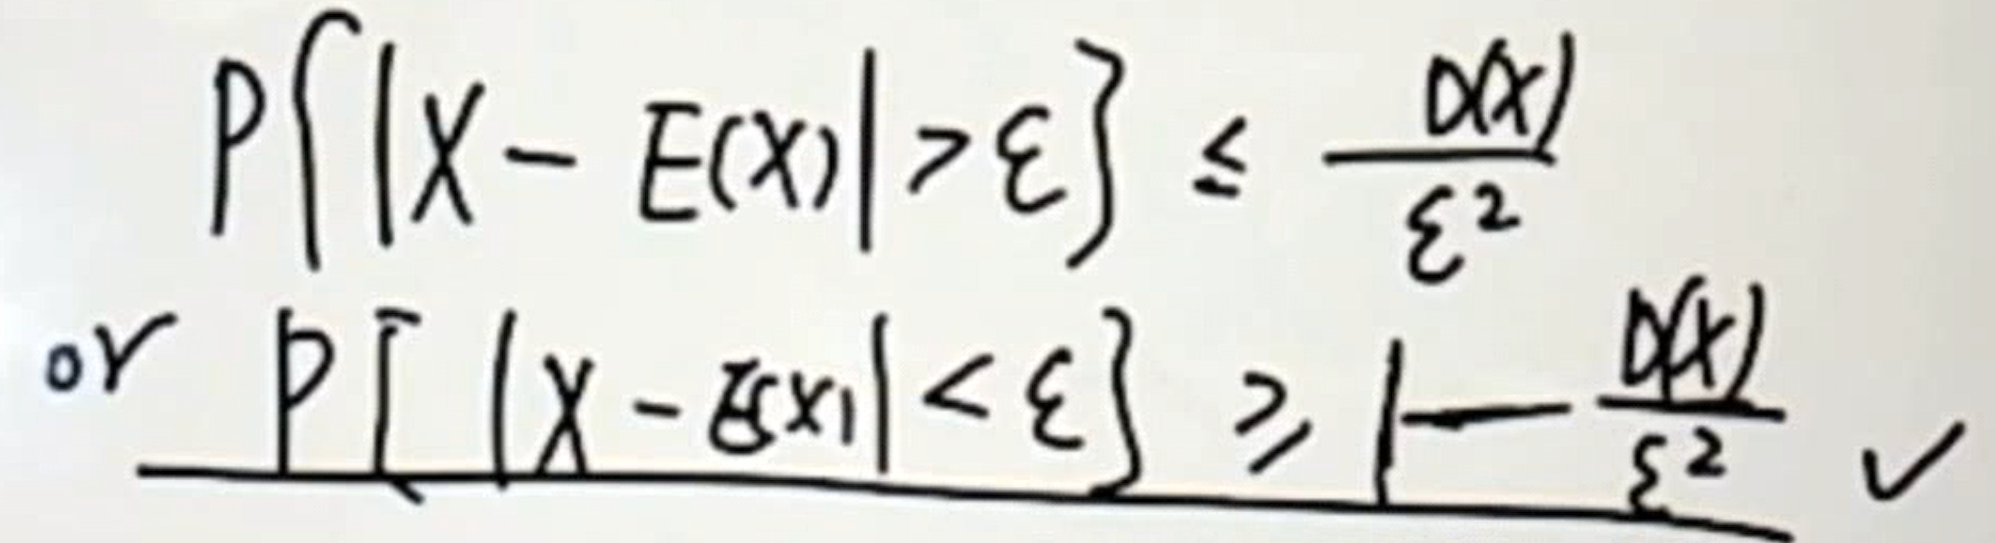 P{|X - E(X)| > ε} ≤ D(X)/ε²
or P{|X - E(X)| < ε} ≥ 1 - D(X)/ε² ✓